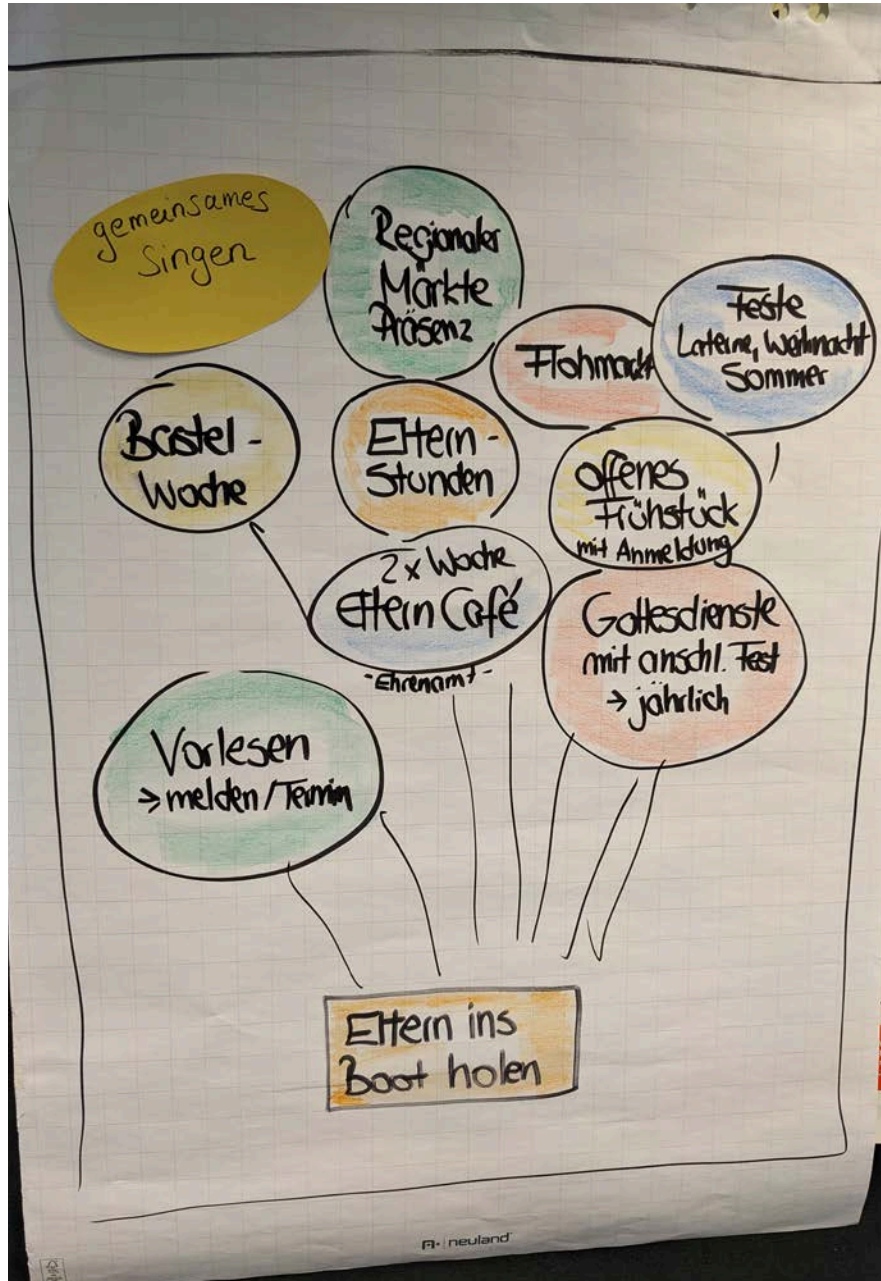 gemeinsames
Singen
Regionaler
Märkte
Präsenz
Feste
Laterne, Weihnacht
Sommer
Flohmarkt
Bastel-
Woche
Eltern-
Stunden
offenes
Frühstück
mit Anmeldung
2x Woche
Eltern Café
-Ehrenamt-
Gottesdienste
mit anschl. Fest
→ jährlich
Vorlesen
→ melden / Termin
Eltern ins
Boot holen
neuland